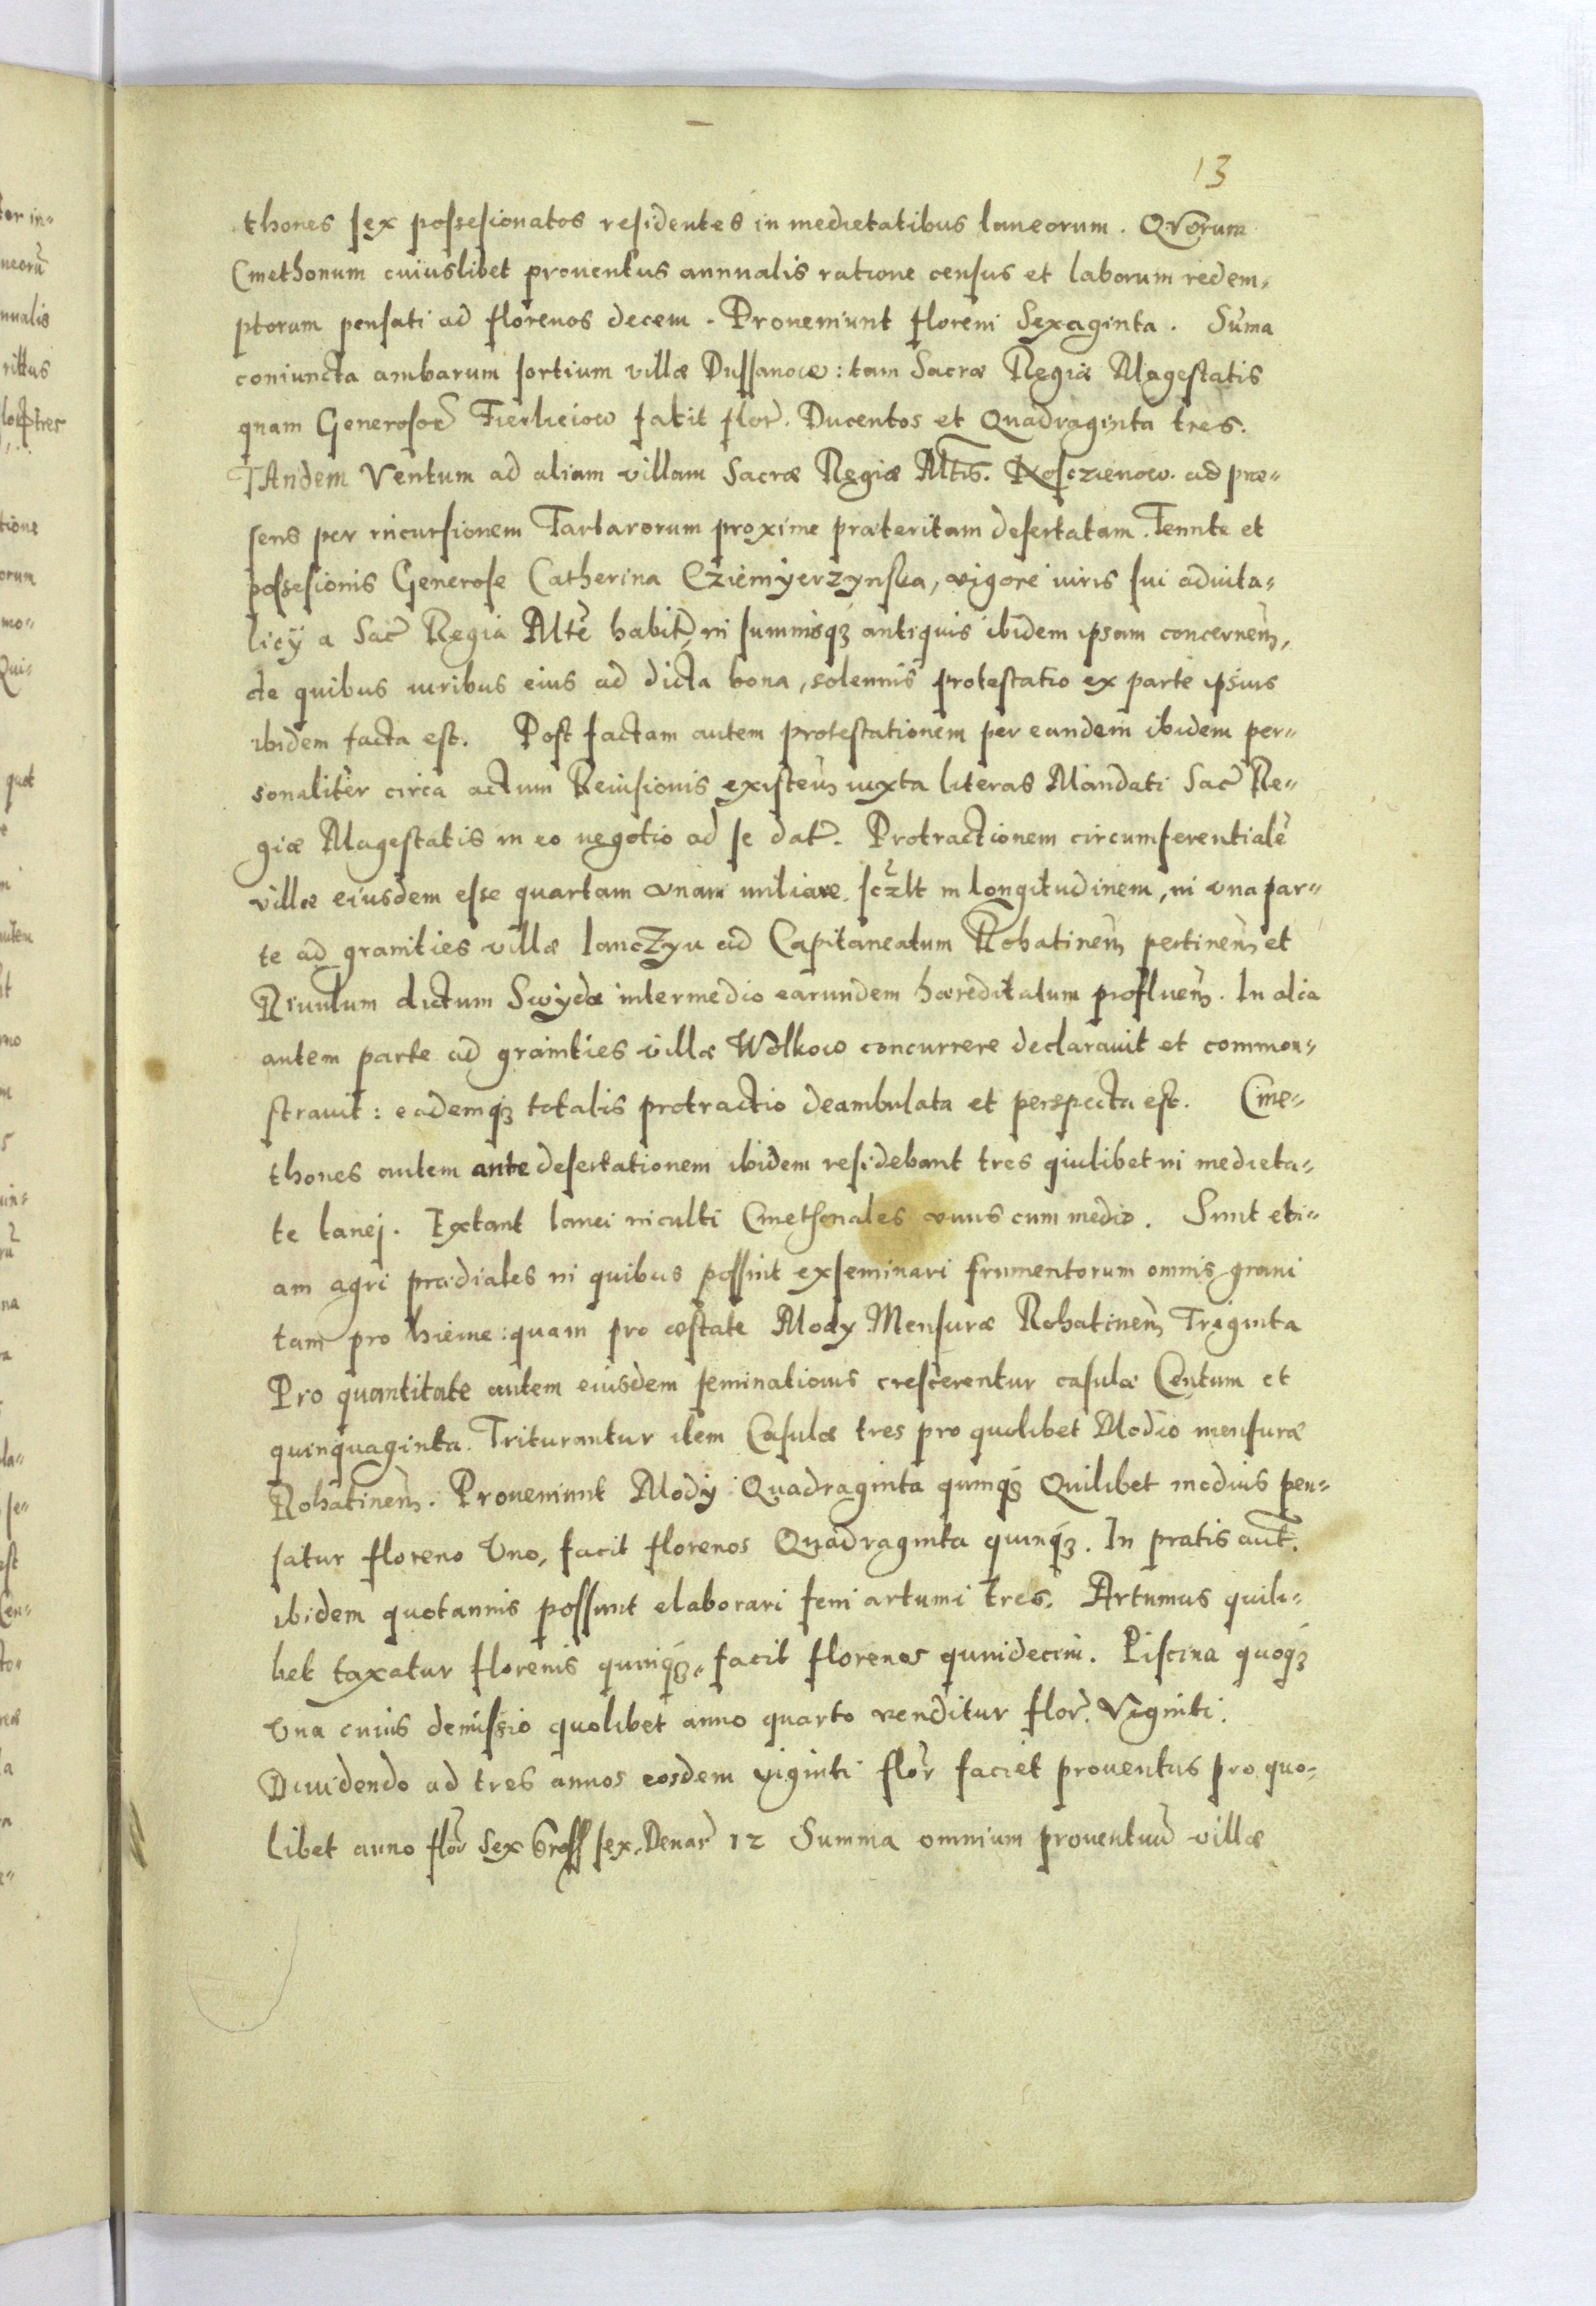 13
thones sex possesionatos residentes in medietatibus laneorum. QVorum
Cmethonum cuiuslibet prouentus annualis ratione census et laborum redem-
ptorum pensati ad florenos decem. Proueniunt floreni Sexaginta. Suma
coniuncta ambarum sortium villæ Dussanow: tam Sacræ Regiæ Magestatis
quam Generosor facit flor. Ducentos et Quadraginta tres.
TAndem Ventum ad aliam villam Sacræ Regiæ Mtis. Kosczienow. ad præ-
sens per incursionem Tartarorum proxime præteritam desertatam. Tennte et
possesionis Generose Catherina Cziemyerzynska, vigore iuris sui aduita-
licÿ a Sac Regia Mte habit, in summisqȝ antiquis ibidem ipsam concernen,
de quibus iuribus eius ad dicta bona, solennis protestatio ex parte ipsius
ibidem facta est. Post factam autem protestationem per eundem ibidem per-
sonaliter circa actum Reuisionis existen iuxta literas Mandati Sac Re-
giæ Magestatis in eo negotio ad se dat. Protractionem circumferentiale
villæ eiusdem esse quartam vnam miliare. sczlt in longitudinem, in vna par-
te ad granities villæ lanczyn ad Capitaneatum Rohatinen pertinen et
Riuulum dictum Swyda intermedio earundem hæreditatum profluen. In alia
autem parte ad granities villæ Wolkow concurrere declarauit et common-
strauit: eademqȝ totalis protractio deambulata et perspecta est. Cme-
thones autem ante desertationem ibidem residebant tres quilibet in medieta-
te lanej. Extant lanei inculti Cmethonales vnus cum medio. Sunt eti-
am agri prædiales in quibus possint exseminari frumentorum omnis grani
tam pro hieme: quam pro æstate Mody Mensuræ Rohatinen Triginta
Pro quantitate autem eiusdem seminationis crescerentur casulæ Centum et
quinquaginta. Triturantur item Casulæ tres pro quolibet Modio mensuræ
Rohatinen. Proueniunt Modÿ Quadraginta quinqȝ Quilibet modius pen-
satur floreno Vno, facit florenos Quadraginta quinqȝ. In pratis aut.
ibidem quotannis possunt elaborari feni artumi tres. Artumus quili-
bet taxatur florenis quinqȝ, facit florenos quindecim. Piscina quoqȝ
Vna cuius demissio quolibet anno quarto venditur flor. Viginti.
Diuidendo ad tres annos eosdem viginti flor faciet prouentus pro quo-
libet anno flor sex Gross sex. Denar 12 Summa omnium prouentuu villæ